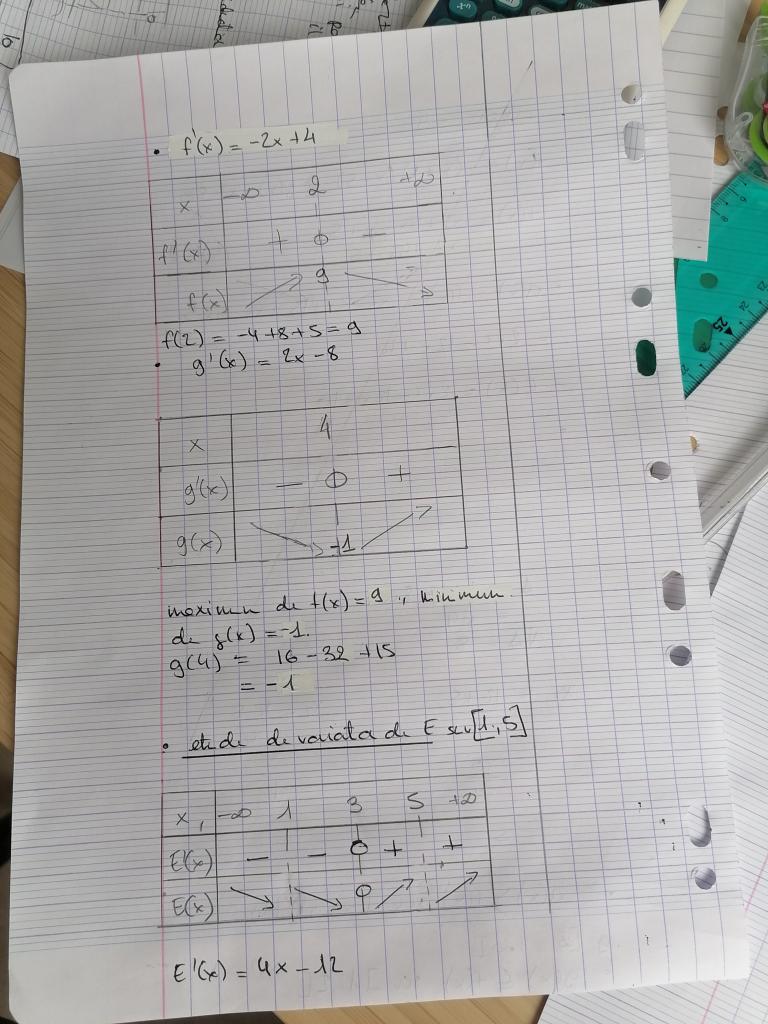 • f'(x) = -2x+4
x -∞ 2 +∞
f'(x) + 0 -
f(x) 9
f(2) = -4+8+5 = 9
• g'(x) = 2x-8
x 4
g'(x) - 0 +
g(x) -1
maximum de f(x) = 9, minimum
de g(x) = -1.
g(4) = 16-32+15
= -1
• etude de variata de E sur [1,5]
x, -∞ 1 3 5 +∞
E'(x) - - 0 + +
E(x)
E'(x) = 4x-12